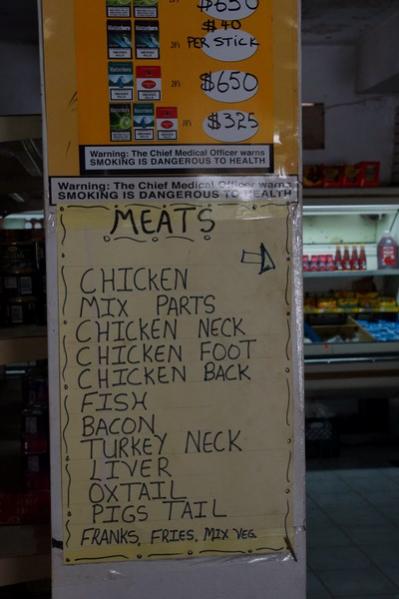 $650
$40
PER STICK
20's
$650
20's
$325
10's
Warning: The Chief Medical Officer warns
SMOKING IS DANGEROUS TO HEALTH
Warning: The Chief Medical Officer warns
SMOKING IS DANGEROUS TO HEALTH
MEATS
CHICKEN
MIX PARTS
CHICKEN NECK
CHICKEN FOOT
CHICKEN BACK
FISH
BACON
TURKEY NECK
LIVER
OXTAIL
PIGS TAIL
FRANKS, FRIES, MIX VEG.